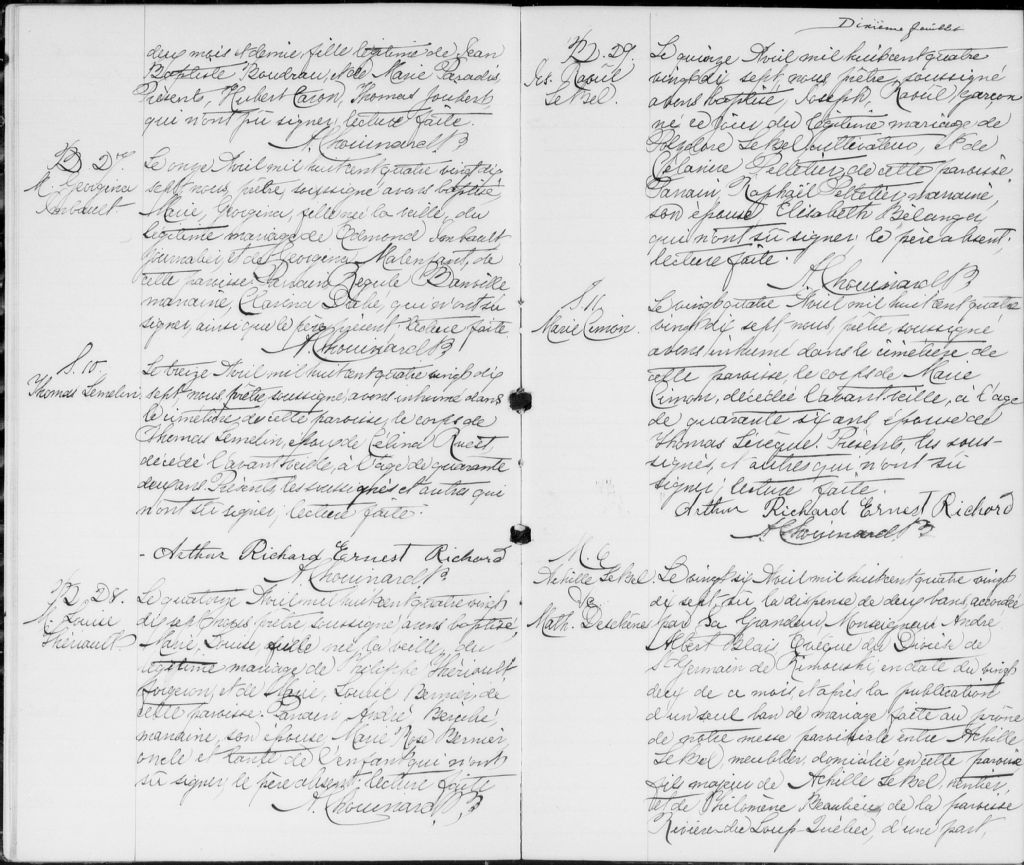 deux mois et demie, fille légitime de Jean
Baptiste Boudrau, et de Marie Paradis
Présent, Hubert Caron, Thomas Joubert
qui n'ont pu signer, lecture faite.
A. Chouinard Ptr
B. D7.
M. Georgina
Imbault.
Le onze Avril mil huit cent quatre vingt dix
sept nous, prêtre, soussigné avons baptisé
Marie, Georgina, fille née la veille, du
légitime mariage de Edmond Imbault
journalier et de Georgina Malenfant, de
cette paroisse. Parrain Regule Banville
marraine, Clarina Dubé, qui n'ont su
signer, ainsi que le père présent. Lecture faite
A. Chouinard Ptr
S. 10.
Thomas Lemelin.
Le treize Avril mil huit cent quatre vingt dix
sept nous, prêtre soussigné, avons inhumé dans
le cimetière de cette paroisse, le corps de
Thomas Lemelin, époux de Célina Ruest,
décédé l'avant veille, à l'âge de quarante
deux ans. Présents, les soussignés et autres qui
n'ont su signer; lecture faite.
- Arthur Richard Ernest Richard
A. Chouinard Ptr
B. D8.
M. Louise
Thériault
Le quatorze Avril mil huit cent quatre vingt
dix sept nous, prêtre soussigné, avons baptisé,
Marie, Louise, fille née la veille, du
légitime mariage de Philippe Thériault,
forgeron, et de Marie, Louise Bernier, de
cette paroisse. Parrain, André Bérubé,
marraine, son épouse, Marie Rose Bernier,
oncle et tante de l'enfant qui n'ont
su signer, le père absent, lecture faite
A. Chouinard, Ptr
Dixième feuillet
B. D9.
Jos. Raoul
LeBel.
Le quinze Avril mil huit cent quatre
vingt dix sept nous prêtre, soussigné
avons baptisé, Joseph, Raoul, garçon
né ce jour du légitime mariage de
Polydore LeBel cultivateur, et de
Célanire Pelletier, de cette paroisse.
Parrain, Raphaël Pelletier, marraine,
son épouse Elisabeth Bélanger,
qui n'ont su signer le père absent.
lecture faite.
A. Chouinard Ptr
S. 11.
Marie Cimon.
Le vingt quatre Avril mil huit cent quatre
vingt dix sept nous, prêtre, soussigné
avons inhumé dans le cimetière de
cette paroisse, le corps de Marie
Cimon, décédée l'avant veille, à l'âge
de quarante six ans, épouse de
Thomas Lévêque. Présents, les sous-
signés, et autres qui n'ont su
signer; lecture faite.
Arthur Richard Ernest Richard
A. Chouinard Ptr
M. 6
Achille LeBel.
Math.
Le vingt six Avril mil huit cent quatre vingt
dix sept, vu la dispense de deux bans, accordée
par Sa Grandeur, Monseigneur André
Albert Blais, Evêque du Diocèse de
St Germain de Rimouski, en date du vingt
deux de ce mois, et après la publication
d'un seul ban de mariage faite au prône
de notre messe paroissiale entre Achille
LeBel, meublier, domicilié en cette paroisse
fils majeur de Achille LeBel, rentier,
et de Philomène Beaulieu, de la paroisse
Rivière du Loup Québec, d'une part,